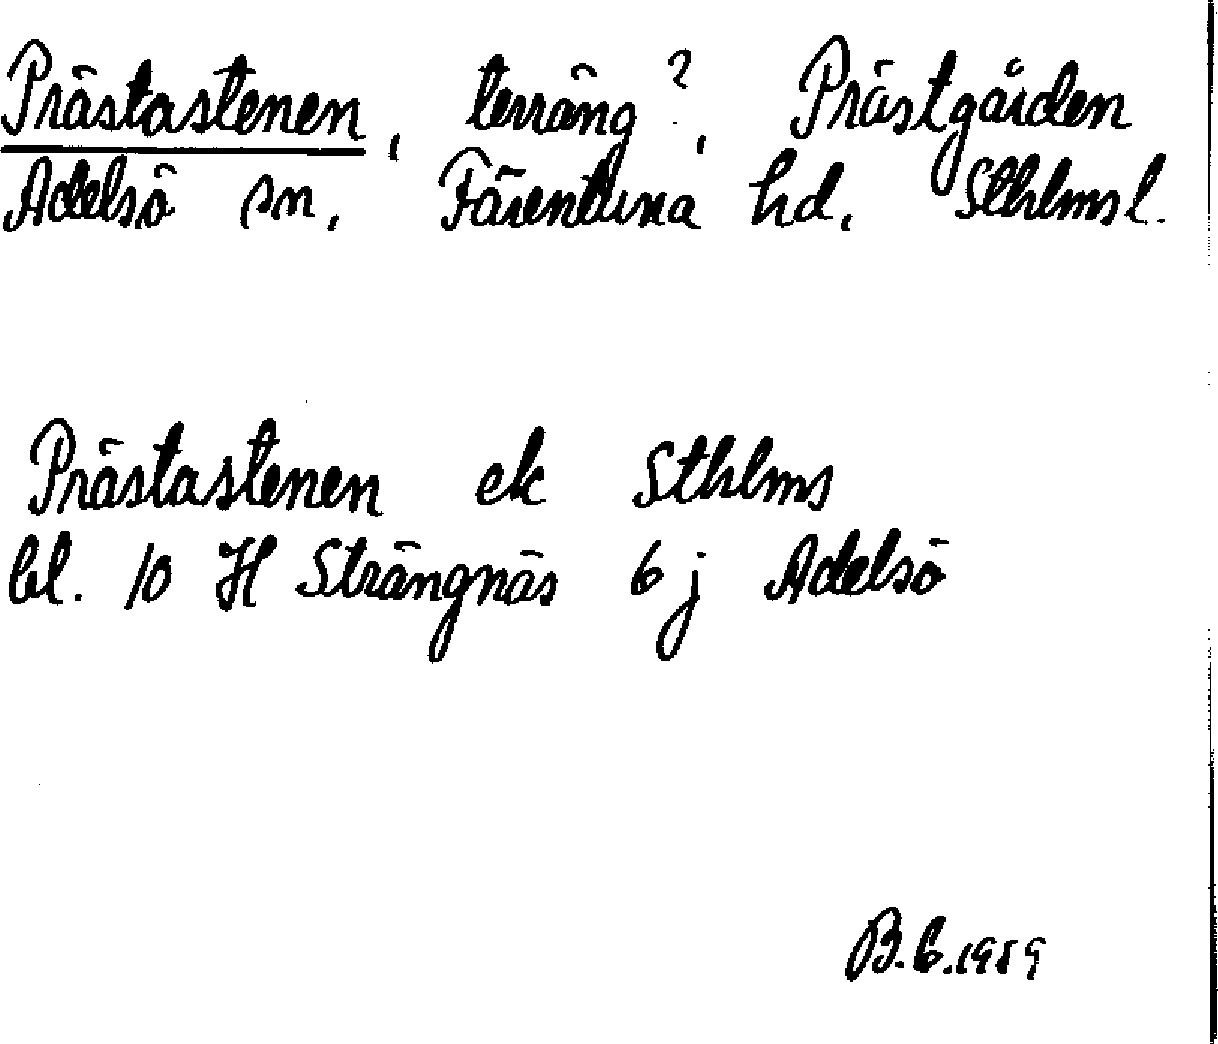 Prästastenen, terräng?, Prästgården
Adelsö sn, Färentuna hd, Sthlms l.
Prästastenen ek Sthlms
bl. 10 H Strängnäs 6 j Adelsö
B.G.1989